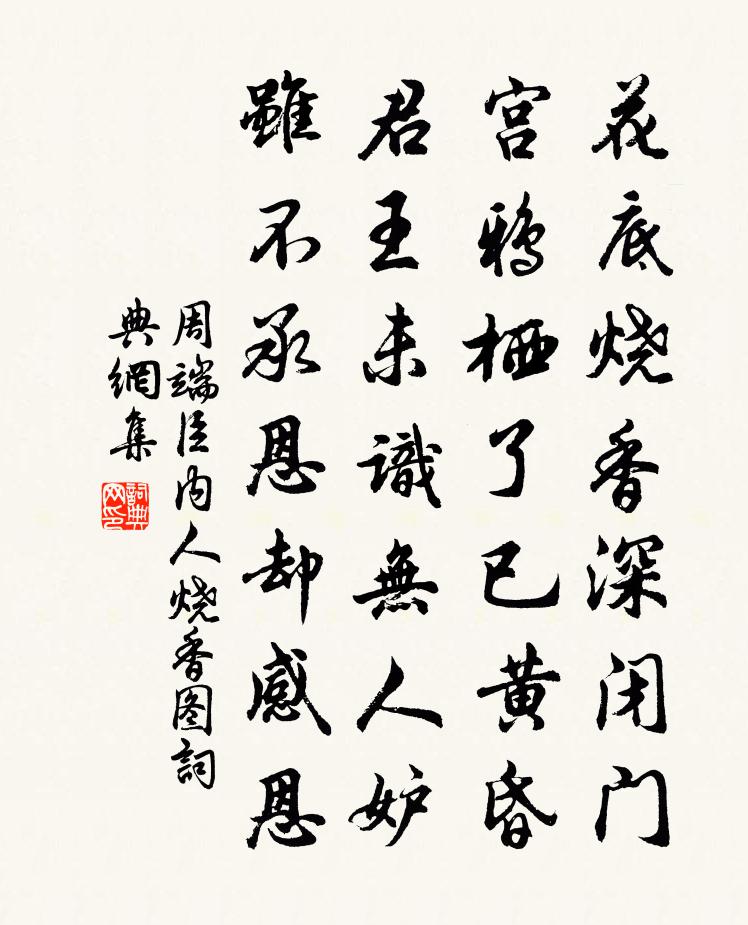 花底烧香深闭门
宫鸦栖了已黄昏
君王未識無人妒
雖不承恩却感恩
周端臣内人烧香图詞
典網集
詞典
网印